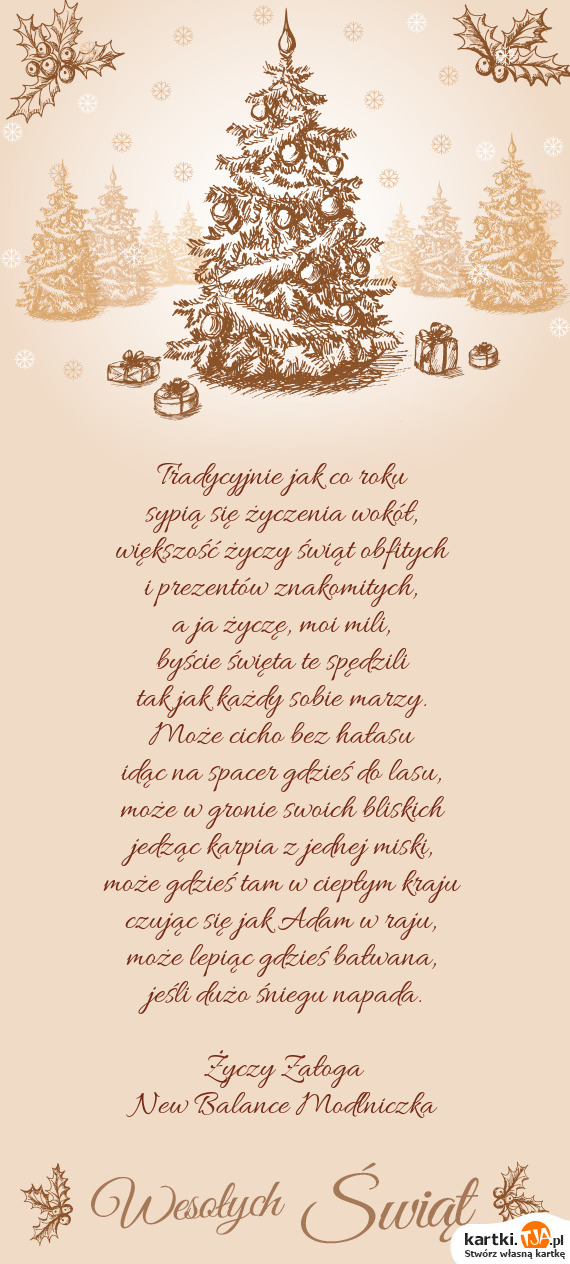 Tradycyjnie jak co roku
sypią się życzenia wokół,
większość życzy świąt obfitych
i prezentów znakomitych,
a ja życzę, moi mili,
byście święta te spędzili
tak jak każdy sobie marzy.
Może cicho bez hałasu
idąc na spacer gdzieś do lasu,
może w gronie swoich bliskich
jedząc karpia z jednej miski,
może gdzieś tam w ciepłym kraju
czując się jak Adam w raju,
może lepiąc gdzieś bałwana,
jeśli dużo śniegu napada.
Życzy Załoga
New Balance Modlniczka
Wesołych Świąt
kartki.TJA.pl
Stwórz własną kartkę